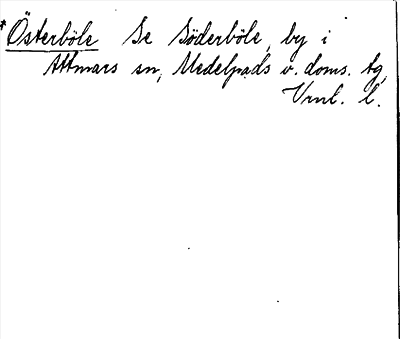 *Österböle Se Söderböle, by i
Attmars sn, Medelpads v. doms. tg,
Vrnl. l.